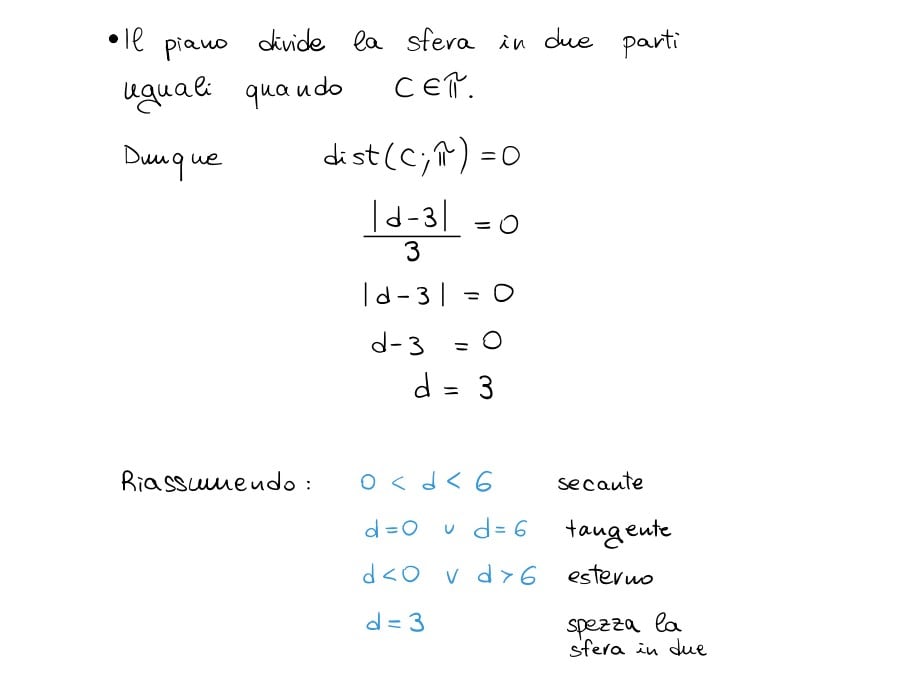 • Il piano divide la sfera in due parti
uguali quando C ∈ π.
Dunque dist(C; π) = 0
|d-3| / 3 = 0
|d-3| = 0
d-3 = 0
d = 3
Riassumendo: 0 < d < 6 secante
d=0 ∪ d=6 tangente
d<0 ∨ d>6 esterno
d=3 spezza la
sfera in due